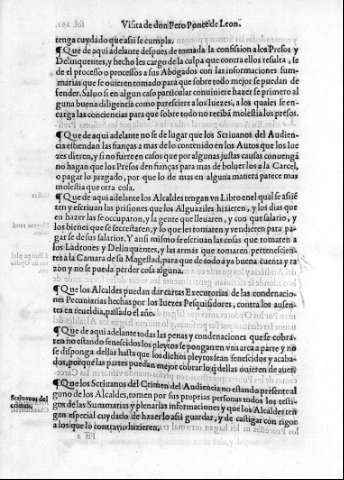 Visita de don Pero Ponce de Leon.
tenga cuydado que assi se cumpla.
¶ Que de aqui adelante despues de tomada la confission a los Presos y
Delinquentes, y hecho les cargo de la culpa que contra ellos resulta, se
de el processo o processos a sus Abogados con las informaciones sum-
marias que se ouieren tomado para que sobre todo mejor se puedan de
fender. Saluo si en algun caso particular conuiniere hazer se primero al
guna buena diligencia como paresciere a los Iuezes, a los quales se en-
carga las consciencias para que sobre todo no reciba molestia los presos.
¶ Que de aqui adelante no se de lugar que los Scriuanos del Audien
cia estiendan las fianças a mas de lo contenido en los Autos que los Iue
zes dieren, y si no fuere en casos que por algunas justas causas conuenga
no hagan que los Presos den fianças para mas de boluer los a la Carcel,
o pagar lo juzgado, por que lo de mas en alguna manera parece mas
molestia que otra cosa.
¶ Que de aqui adelante los Alcaldes tengan vn Libro en el qual se assie
ten y escriuan las prisiones que los Alguaziles hizieren, y los dias que
en hazer las se occuparon, y la gente que lleuaren, y con que salario, y
los bienes que se secrestaren, y lo que les tomaren y vendieren para pa-
gar se de sus salarios. Y ansi mismo se escriuan las cosas que tomaren a
los Ladrones y Delinquentes, y las armas que tomaren pertenescien-
tes a la Camara de su Magestad, para que de todo aya buena cuenta y ra
zon y no se pueda perder cosa alguna.
¶ Que los Alcaldes puedan dar cartas Executorias de las condenacio
nes Pecuniarias hechas por los Iuezes Pesquisidores, contra los ausen-
tes en reueldia, passado el año.
¶ Que de aqui adelante todas las penas y condenaciones que se cobra-
ren no estando fenescidos los pleytos se pongan en vn arca a parte y no
se disponga dellas hasta que los dichos pleytos sean fenescidos y acaba-
dos, porque las partes puedan mejor cobrar lo si dellas ouieren de auer.
¶ Que los Scriuanos del Crimen del Audiencia no estando presente al
guno de los Alcaldes, tomen por sus propias personas todos los testi-
gos de las Summarias y plenarias informaciones y que los Alcaldes ten
gan especial cuydado de hazer lo assi guardar, y de castigar con rigor
a los que lo contrario hizieren.
Scriuanos del
crimen.